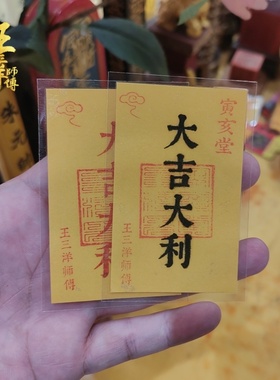 王
師傅
寅亥堂
大吉大利
王三洋師傅
大吉大利
王三洋師傅
朱元